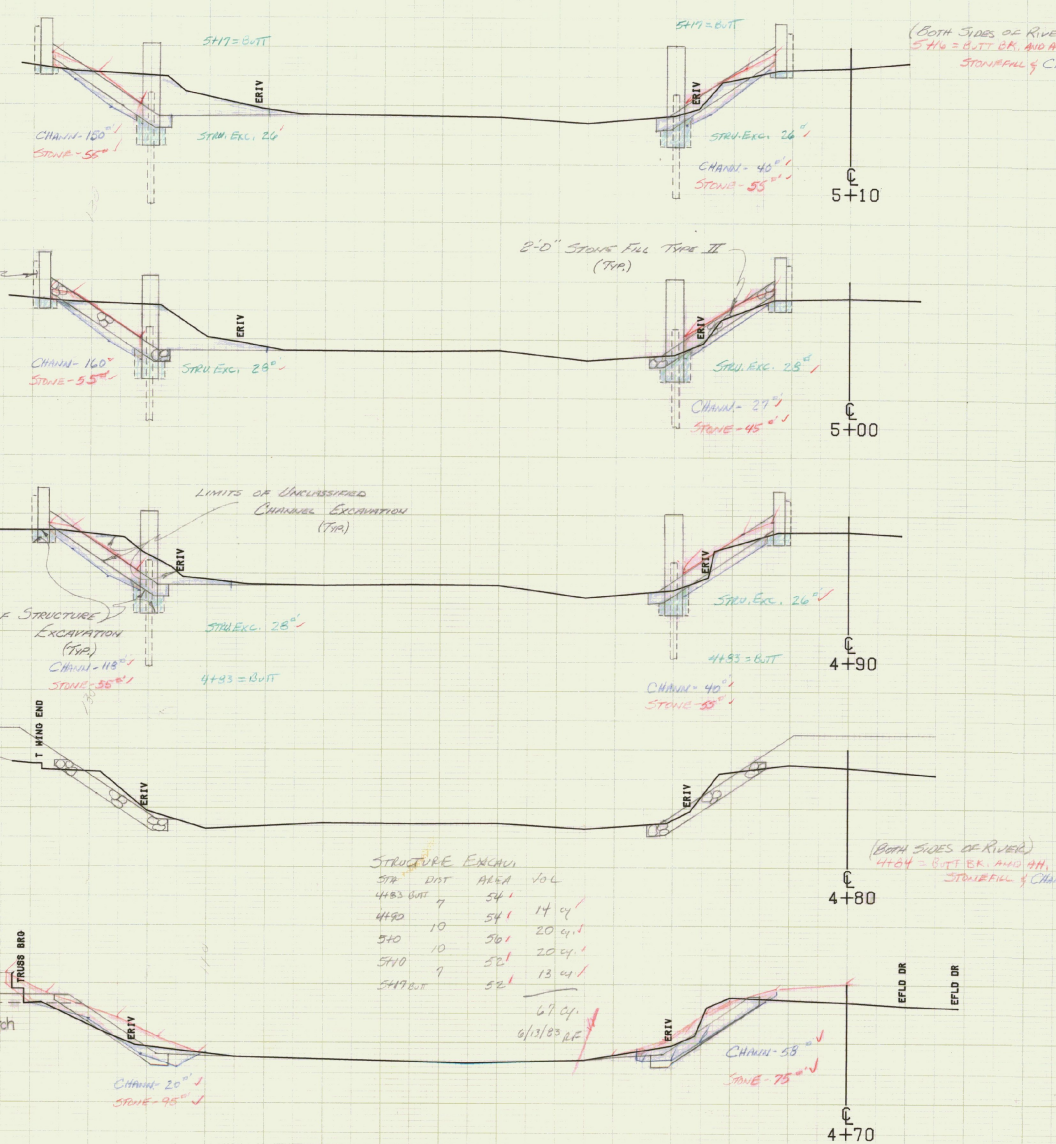 5+17 = BUTT
5+17 = BUTT
(BOTH SIDES OF RIVE
5+16 = BUTT BK. AND A
STONEFILL & C
ERIV
ERIV
CHANN - 150
STONE - 56
STRU. EXC. 26
STRU. EXC. 26
CHANN. - 40
STONE - 55
℄
5+10
2'-0" STONE FILL TYPE II
(TYP.)
ERIV
ERIV
CHANN - 160
STONE - 55
STRU. EXC. 28
STRU. EXC. 28
CHANN. - 27
STONE - 45
℄
5+00
LIMITS OF UNCLASSIFIED
CHANNEL EXCAVATION
(TYP.)
ERIV
ERIV
F STRUCTURE
EXCAVATION
(TYP.)
CHANN - 118
STONE - 55
STRU. EXC. 28
4+83 = BUTT
STRU. EXC. 26
4+83 = BUTT
CHANN - 40
STONE - 55
℄
4+90
T WING END
ERIV
ERIV
(BOTH SIDES OF RIVER)
4+64 = BUTT BK. AND AH.
STONEFILL & CHAN
℄
4+80
STRUCTURE EXCAV.
STA DIST AREA VOL
4+83 BUTT 54
7 14 cy
4+90 54
10 20 cy.
5+0 56
10 20 cy.
5+10 52
7 13 cy
5+17 BUTT 52
67 cy.
6/13/83 RF
TRUSS BRG
ch
ERIV
ERIV
EFLD DR
EFLD DR
CHANN - 20
STONE - 95
CHANN - 58
STONE - 75
℄
4+70